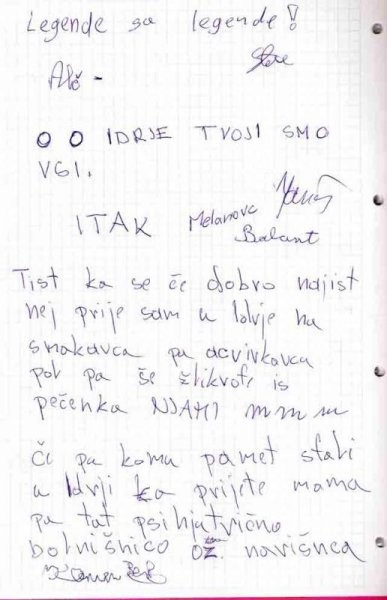 Legende so legende!
Aleš -
O O IDRJE TVOJI SMO
VSI.
ITAK Melanova
Balant
Tist ka se če dobro najist
nej prije sam u Idrje na
smakavca pa ocvirkavca
pol pa še žlikrofe is
pečenka NJAMI mmm
Či pa komu pamet stali
u Idrji ka prijete mama
pa tut psihjatrično
bolnišnico